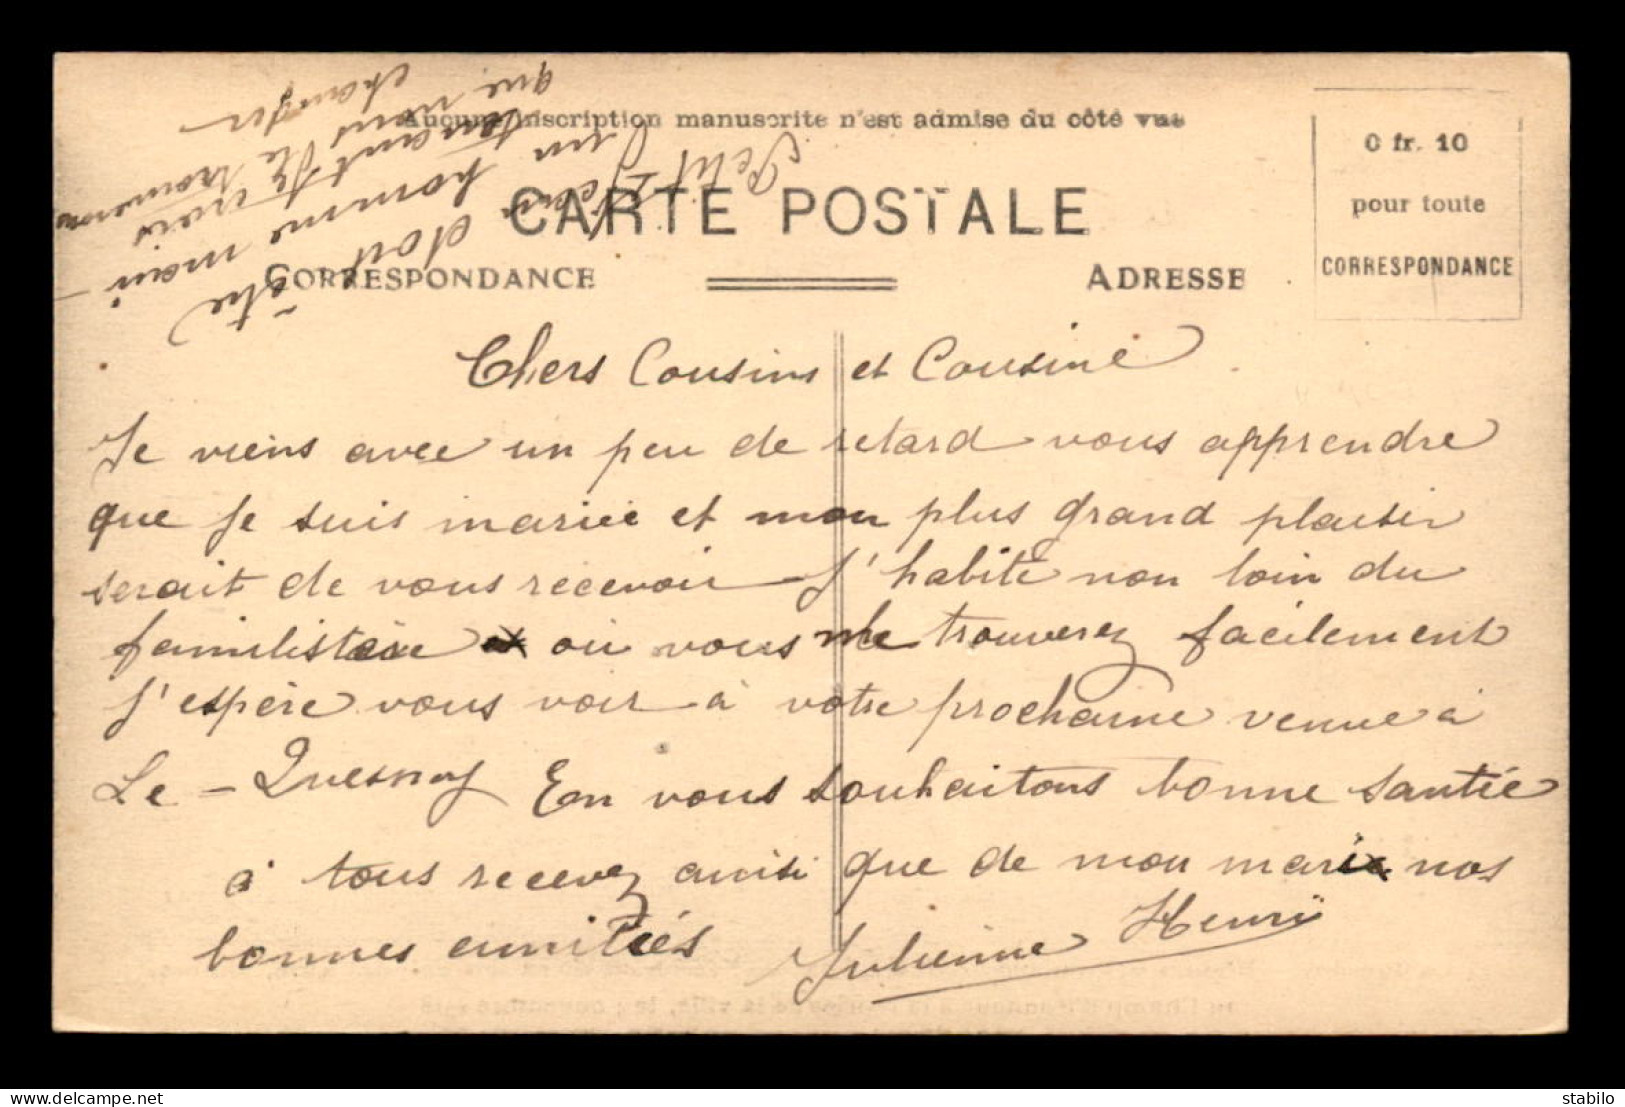 Aucune inscription manuscrite n'est admise du côté vue
CARTE POSTALE
CORRESPONDANCE
ADRESSE
0 fr. 10
pour toute
CORRESPONDANCE
Chers Cousins et Cousine
Je viens avec un peu de retard vous apprendre
que je suis mariée et mon plus grand plaisir
serait de vous recevoir J'habite non loin du
familistère où vous me trouverez facilement
J'espère vous voir à votre prochaine venue à
Le - Quesnoy En vous souhaitons bonne santée
à tous recevez ainsi que de mon mari nos
bonnes amitiés Julienne Henri
Petit Jean doit être
un homme main-
tenant je crois
que nous le trouverons
changer
www.delcampe.net
stabilo